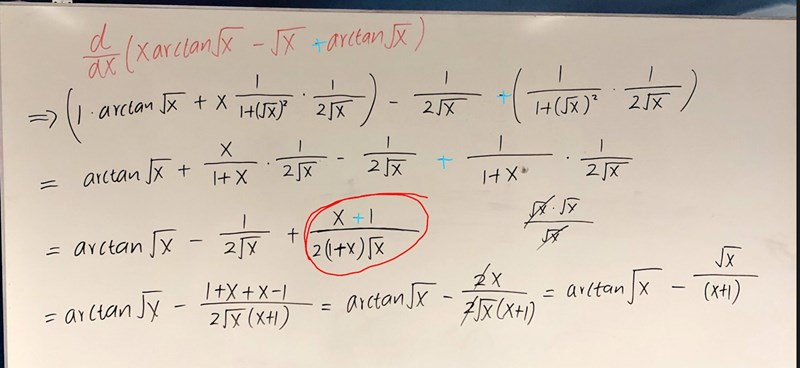 d/dx (x arctan√x - √x + arctan√x)
=> (1 · arctan√x + x 1/(1+(√x)²) · 1/(2√x)) - 1/(2√x) + (1/(1+(√x)²) · 1/(2√x))
= arctan√x + x/(1+x) · 1/(2√x) - 1/(2√x) + 1/(1+x) · 1/(2√x)
= arctan√x - 1/(2√x) + (x+1)/(2(1+x)√x)
(√x · √x)/√x
= arctan√x - (1+x+x-1)/(2√x(x+1)) = arctan√x - 2x/(2√x(x+1)) = arctan√x - √x/(x+1)